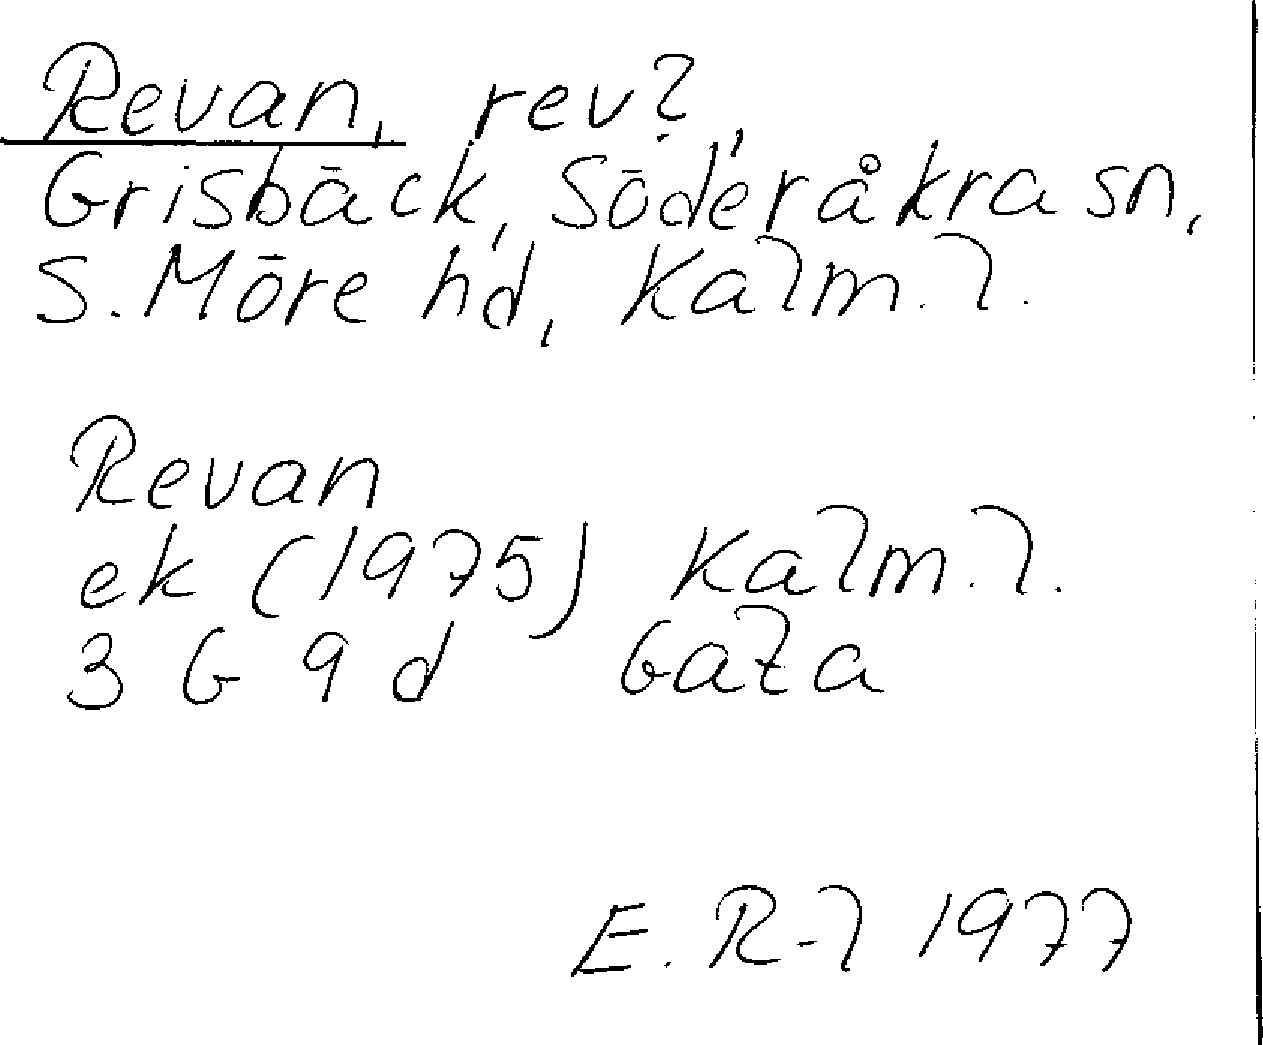 Revan, rev?,
Grisbäck, Söderåkra sn,
S. Möre hd, Kalm. l.
Revan
ek (1975) Kalm. l.
3 G 9 d Gata
E. R-l 1977